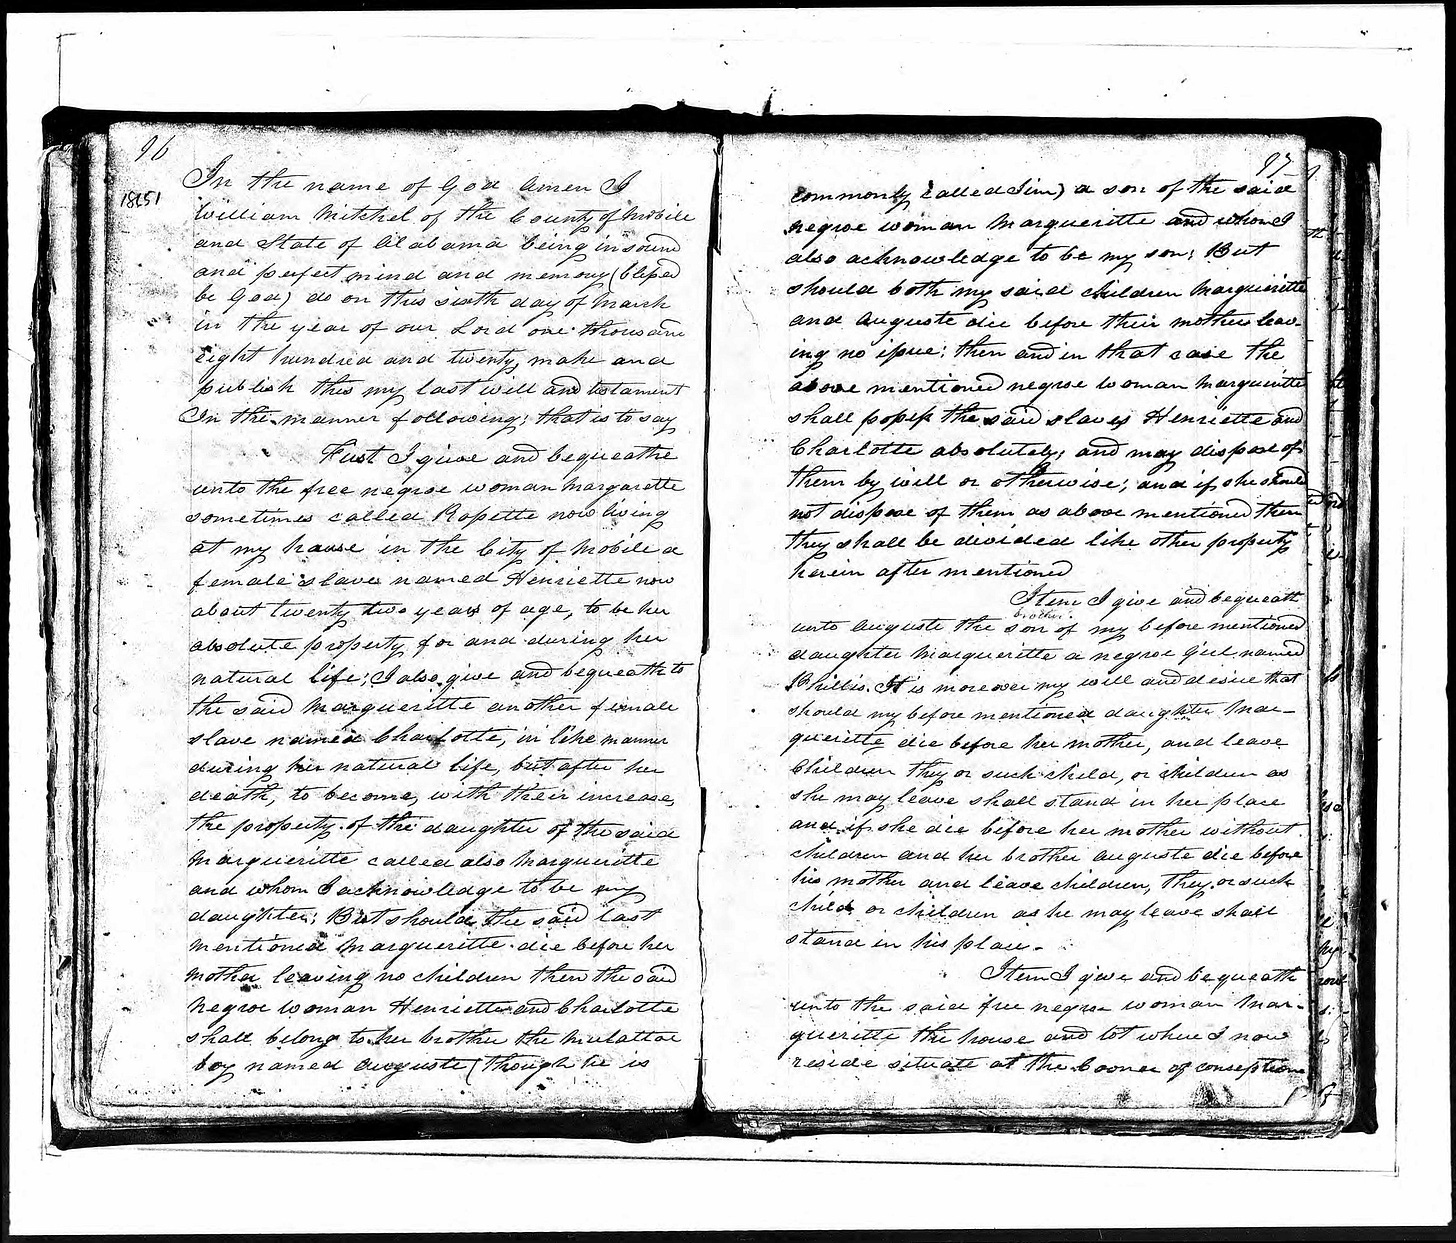 96
In the name of God Amen I
William Mitchel of the County of Mobile
and State of Alabama being in sound
and perfect mind and memory (blessed
be God) do on this sixth day of March
in the year of our Lord one thousand
eight hundred and twenty, make and
publish this my last will and testament
In the manner following; that is to say
First I give and bequeathe
unto the free negroe woman Margarette
sometimes called Rosette now living
at my house in the City of Mobile a
female slave named Henriette now
about twenty two years of age, to be her
absolute property for and during her
natural life; I also give and bequeath to
the said Margueritte another female
slave named Charlotte, in like manner
during her natural life, but after her
death, to become, with their increase,
the property of the daughter of the said
Margueritte called also Margueritte
and whom I acknowledge to be my
daughter; But should the said last
mentioned Margueritte die before her
mother leaving no children then the said
Negroe woman Henriette and Charlotte
shall belong to her brother the Mulattoe
boy named Auguste (though he is
97
commonly called Jim) a son of the said
negroe woman Margueritte and whom I
also acknowledge to be my son; But
should both my said children Margueritte
and Auguste die before their mother leav-
ing no issue; then and in that case the
above mentioned negroe woman Margueritte
shall possess the said slaves Henriette and
Charlotte absolutely; and may dispose of
them by will or otherwise; and if she should
not dispose of them as above mentioned then
they shall be devided like other property
herein after mentioned
Item I give and bequeath
brother
unto Auguste the son of my before mentioned
daughter Margueritte a negroe girl named
Phillis. It is moreover my will and desire that
should my before mentioned daughter Mar-
gueritte die before her mother, and leave
Children they or such child, or children as
she may leave shall stand in her place
and if she die before her mother without
children and her brother Auguste die before
his mother and leave children, they or such
child or children as he may leave shall
stand in his place.
Item I give and bequeath
unto the said free negroe woman Mar-
gueritte the house and lot where I now
reside situate at the Corner of conseption